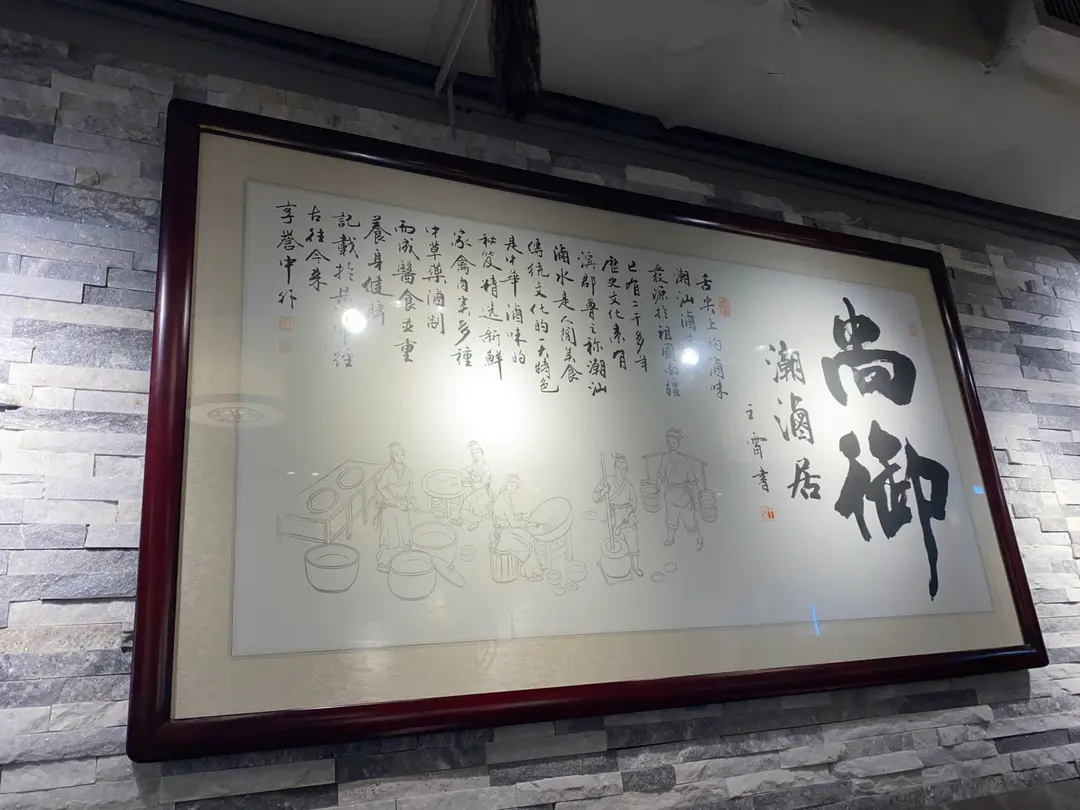 尚御
潮滷居
主霄書
舌尖上的滷味
潮汕滷
發源於祖國南疆
已有二千多年
歷史文化素有
濱鄒魯之称潮汕
滷水是人間美食
傳統文化的一大特色
是中華滷味的
秘笈精选新鮮
家禽肉类多種
中草藥滷制
而成醫食並重
養身健脾
記載於經
古往今来
享譽中外